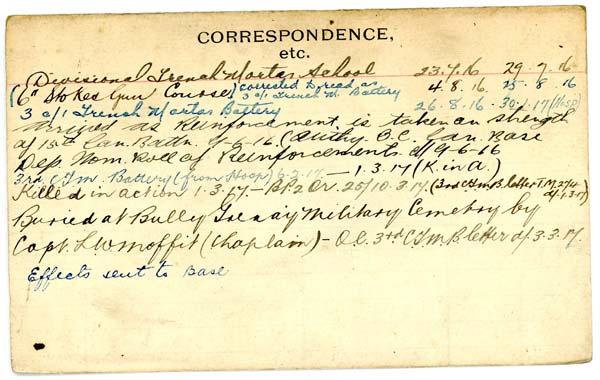 CORRESPONDENCE,
etc.
Divisional Trench Mortar School 23.7.16 29.7.16
(6" Stokes Gun Course) corrected to read as 3 a/1 Trench M. Battery 4.8.16 25.8.16
3 a/1 Trench Mortar Battery 26.8.16 30.1.17 (Hosp)
Arrived as Reinforcement is taken on strength
of 15th Can. Battn. 9-6-16. (Authy O.C. Can. Base
Dep Nom. Roll of Reinforcements d/9-6-16
3rd C.T.M. Battery (from Hosp) 6.2.17 — 1.3.17 (K. in A.)
Killed in action 1.3.17 — BP2 Or. 25/10.3.17. (3rd C.T.M.B. letter T.M. 27/4 d/1.3.17)
Buried at Bully Grenay Military Cemetry by
Capt. L W Moffit (Chaplain) — O.C. 3rd C.T.M.B. letter d/3.3.17.
Effects sent to Base